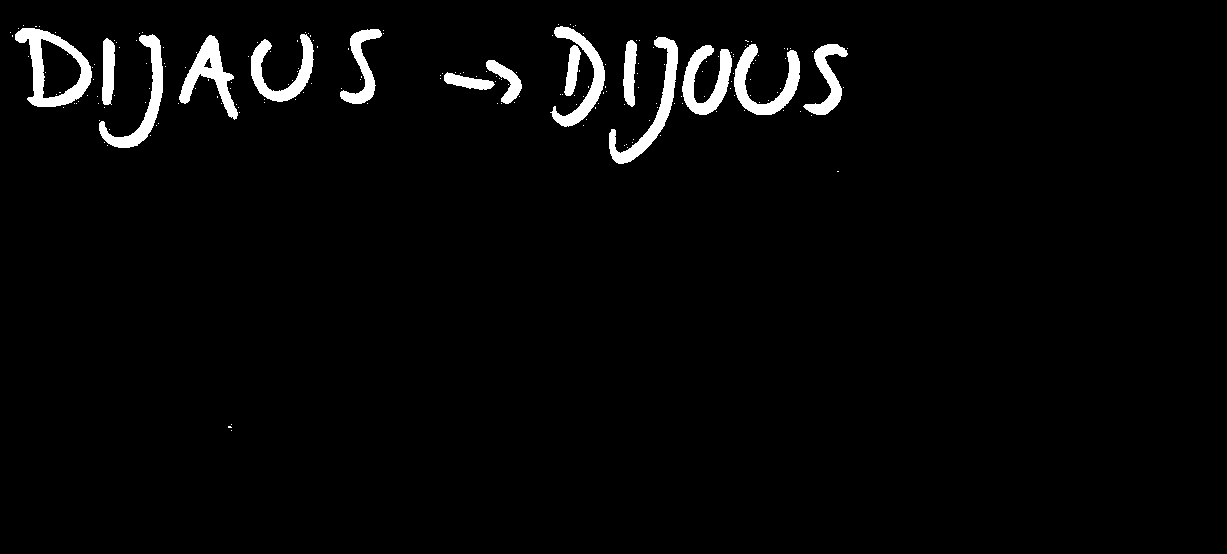 DIJAUS → DIJOUS